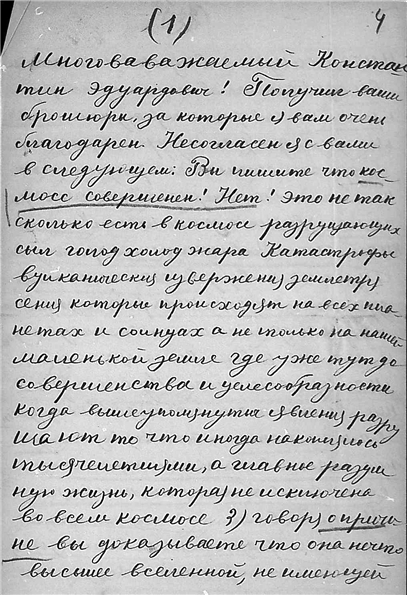 (1) 4
Многоваважаемый Констан
тин Эдуардович! Получил ваши
брошюры, за которые я вам очень
благодарен. Несогласен я с вами
в следующем: Вы пишите что кос
мосс совершенен! Нет! это не так
сколько есть в космосе разрущающих
сил голод холод жара Катастрофы
вулканическия извержения землетря
сения которые происходят на всех пла
нетах и солнцах а не только на нашей
маленькой земле где уже тут до
совершенства и целесообразности
когда вышеупомянутыя явления разру
шают то что иногда накоплялось
тысячелетиями, а главное разум
ную жизнь, которая не исключена
во всем космосе 3) говоря о причи
не вы доказываете что она нечто
высшее вселенной, не имеющей